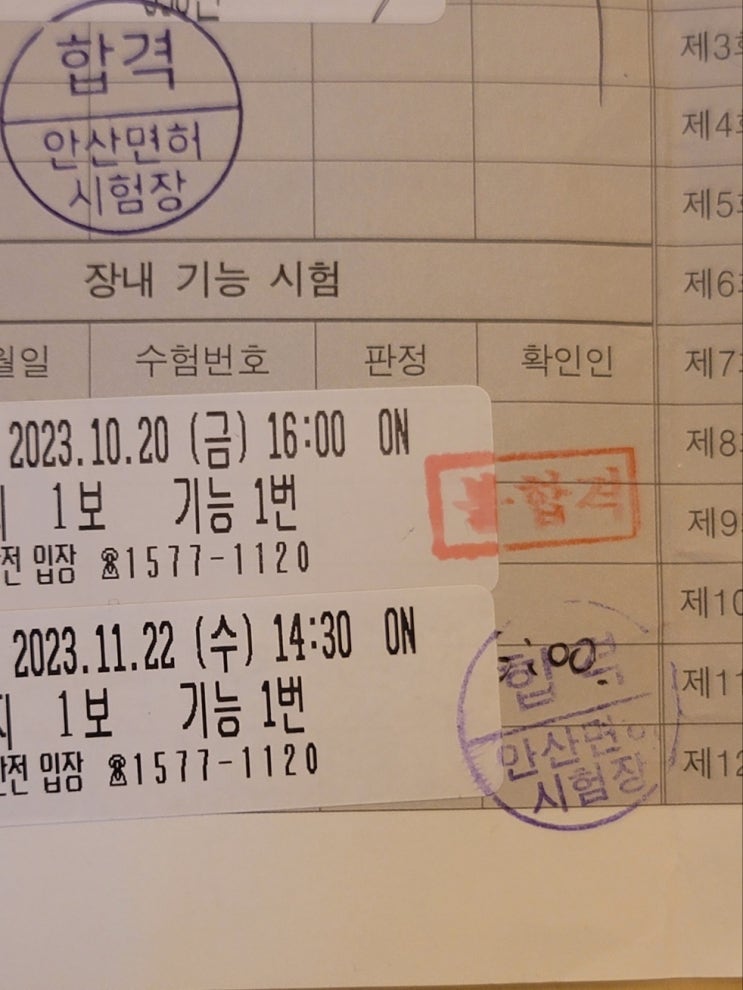 합격
안산면허
시험장
장내 기능 시험
월일 수험번호 판정 확인인
2023.10.20 (금) 16:00 ON
1보 기능 1번
입장 ☎1577-1120
불합격
2023.11.22 (수) 14:30 ON
1보 기능 1번
입장 ☎1577-1120
합격
안산면허
시험장
제3회
제4회
제5회
제6
제7
제8
제9
제10
제11
제12